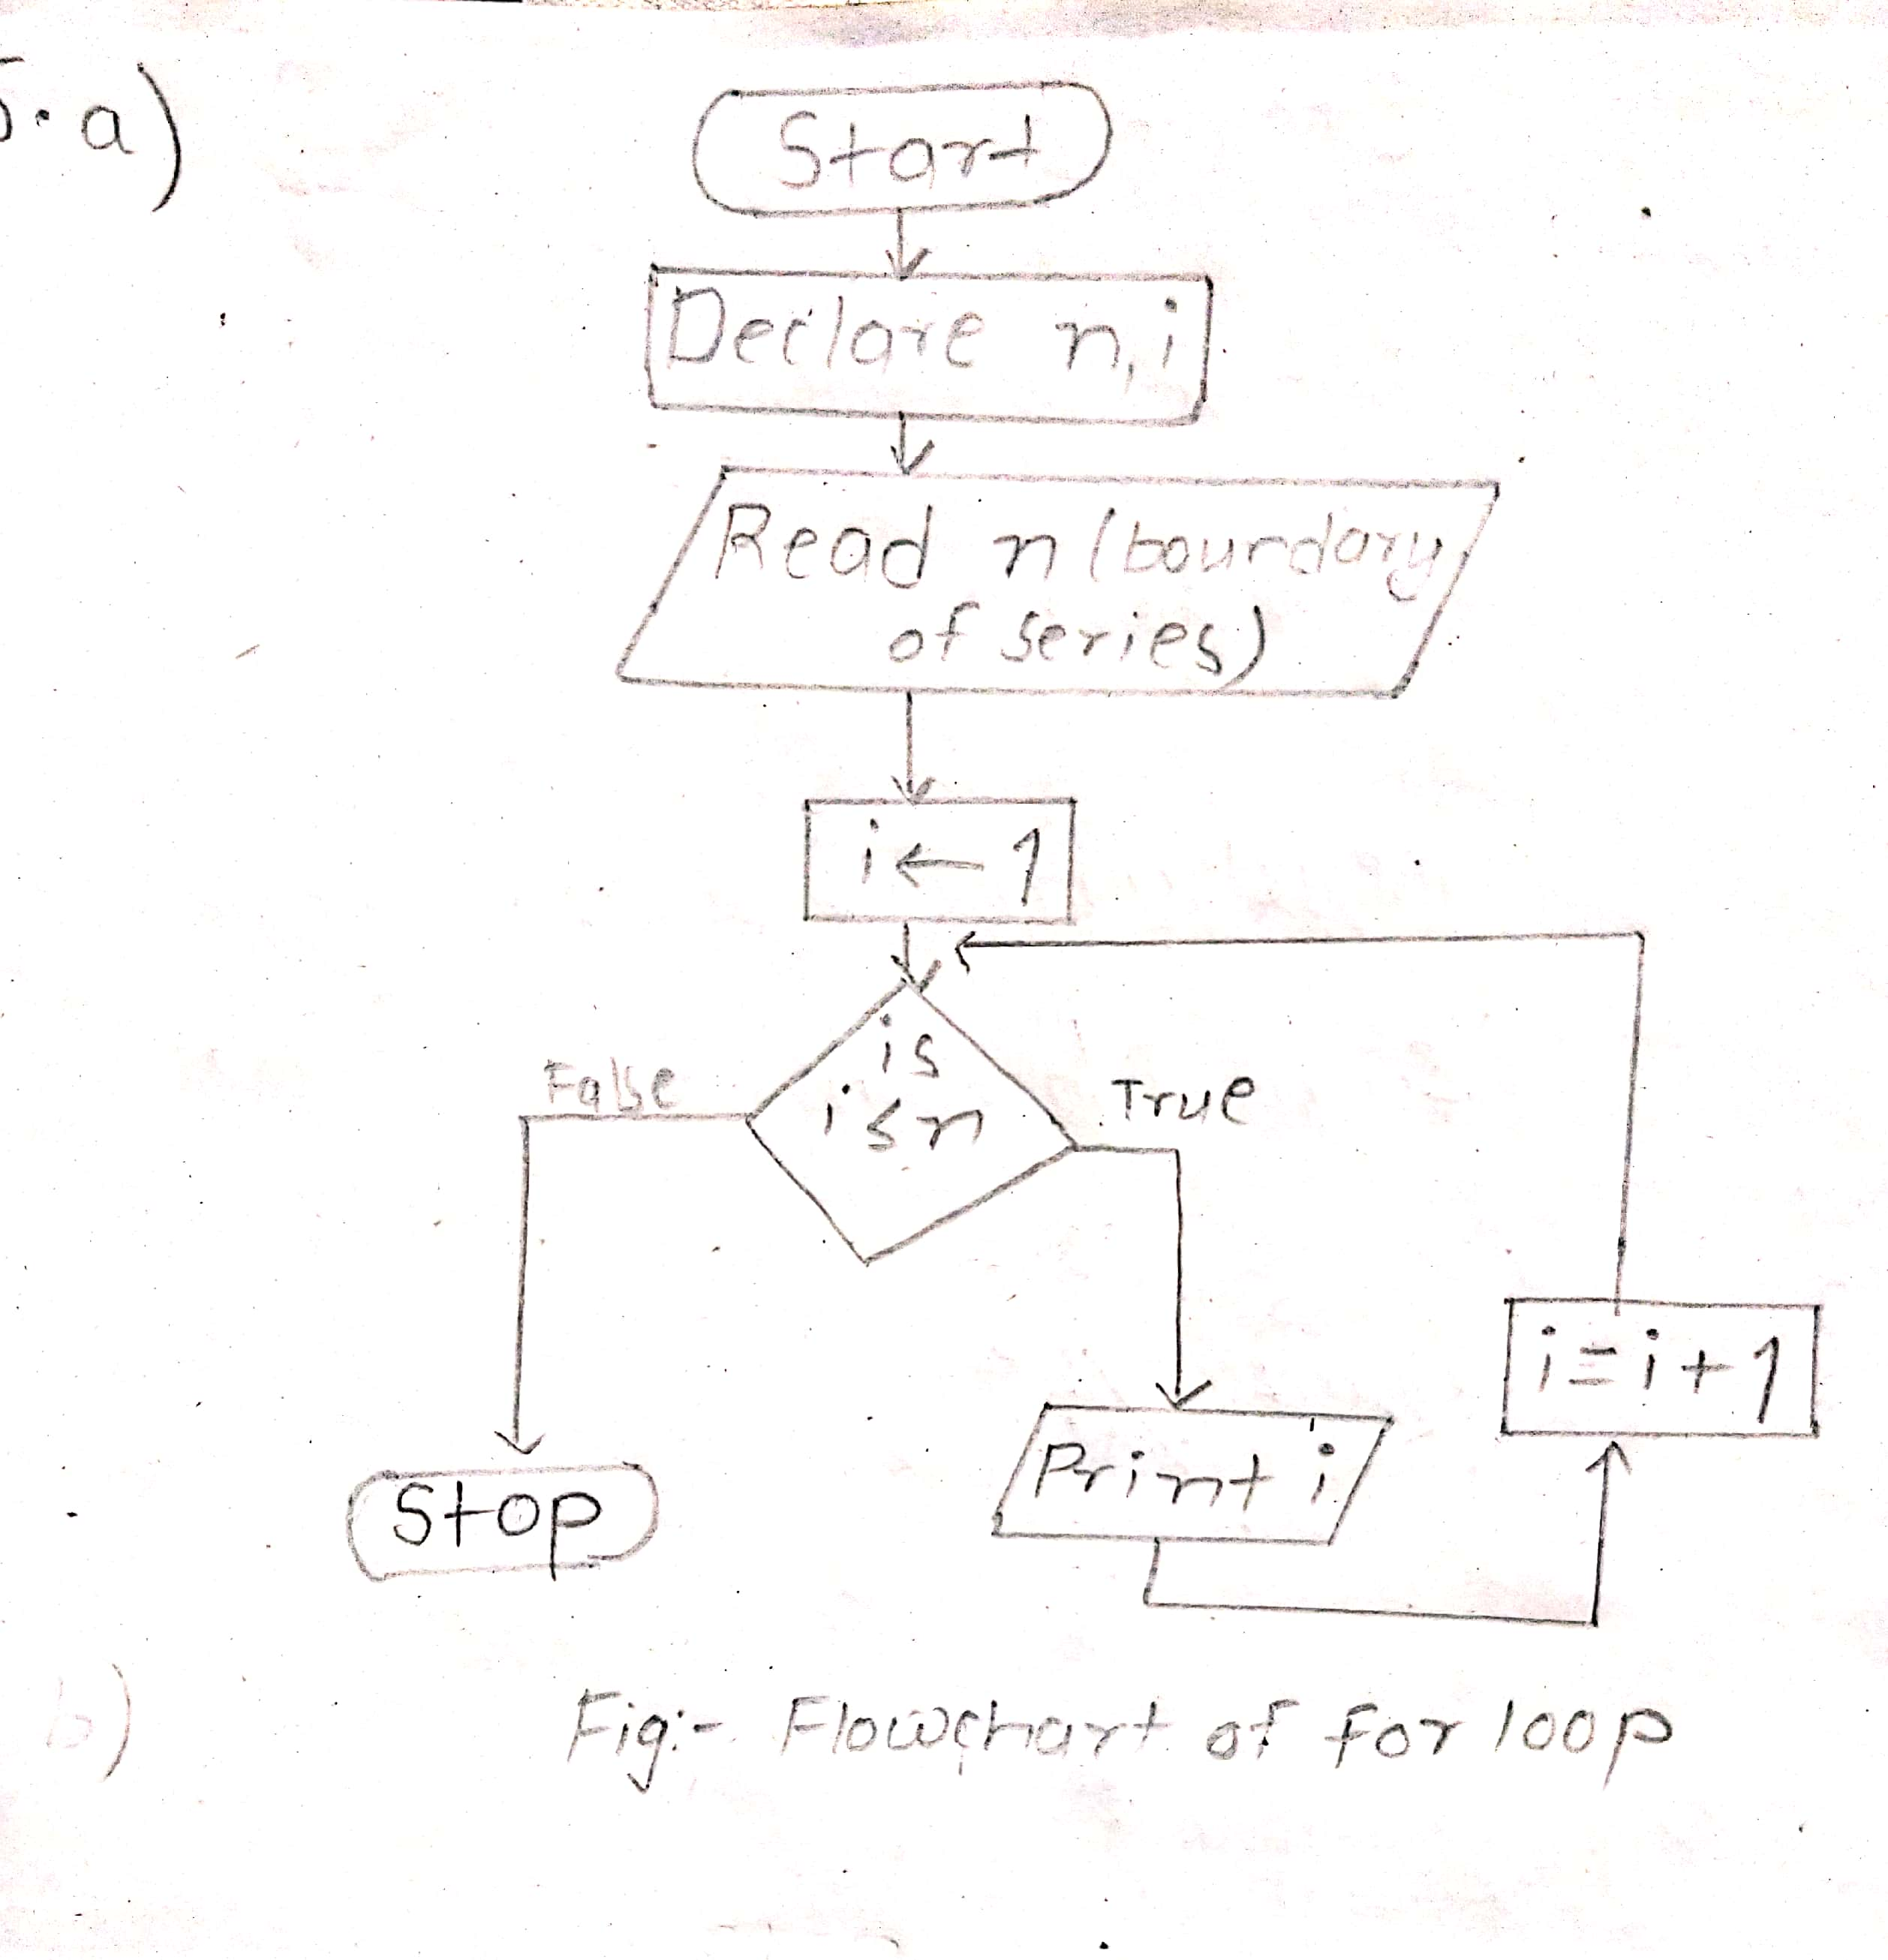 5.a)
Start
Declare n, i
Read n (boundary
of series)
i ← 1
is
i ≤ n
False
True
i = i + 1
Print i
Stop
b)
Fig:- Flowchart of for loop